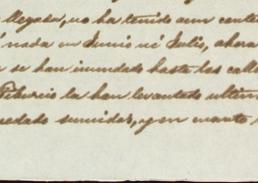 llegada, no ha tenido aun
nada en Junio ni Julio, ahora
se han inundado hasta las calle
Tiburcio la han levantado ultim
sumidas, y en cuanto